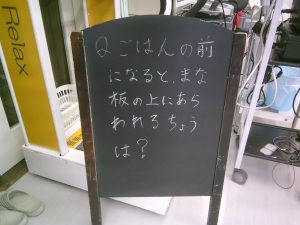 Relax
Qごはんの前
になると、まな
板の上にあら
われるちょう
は?